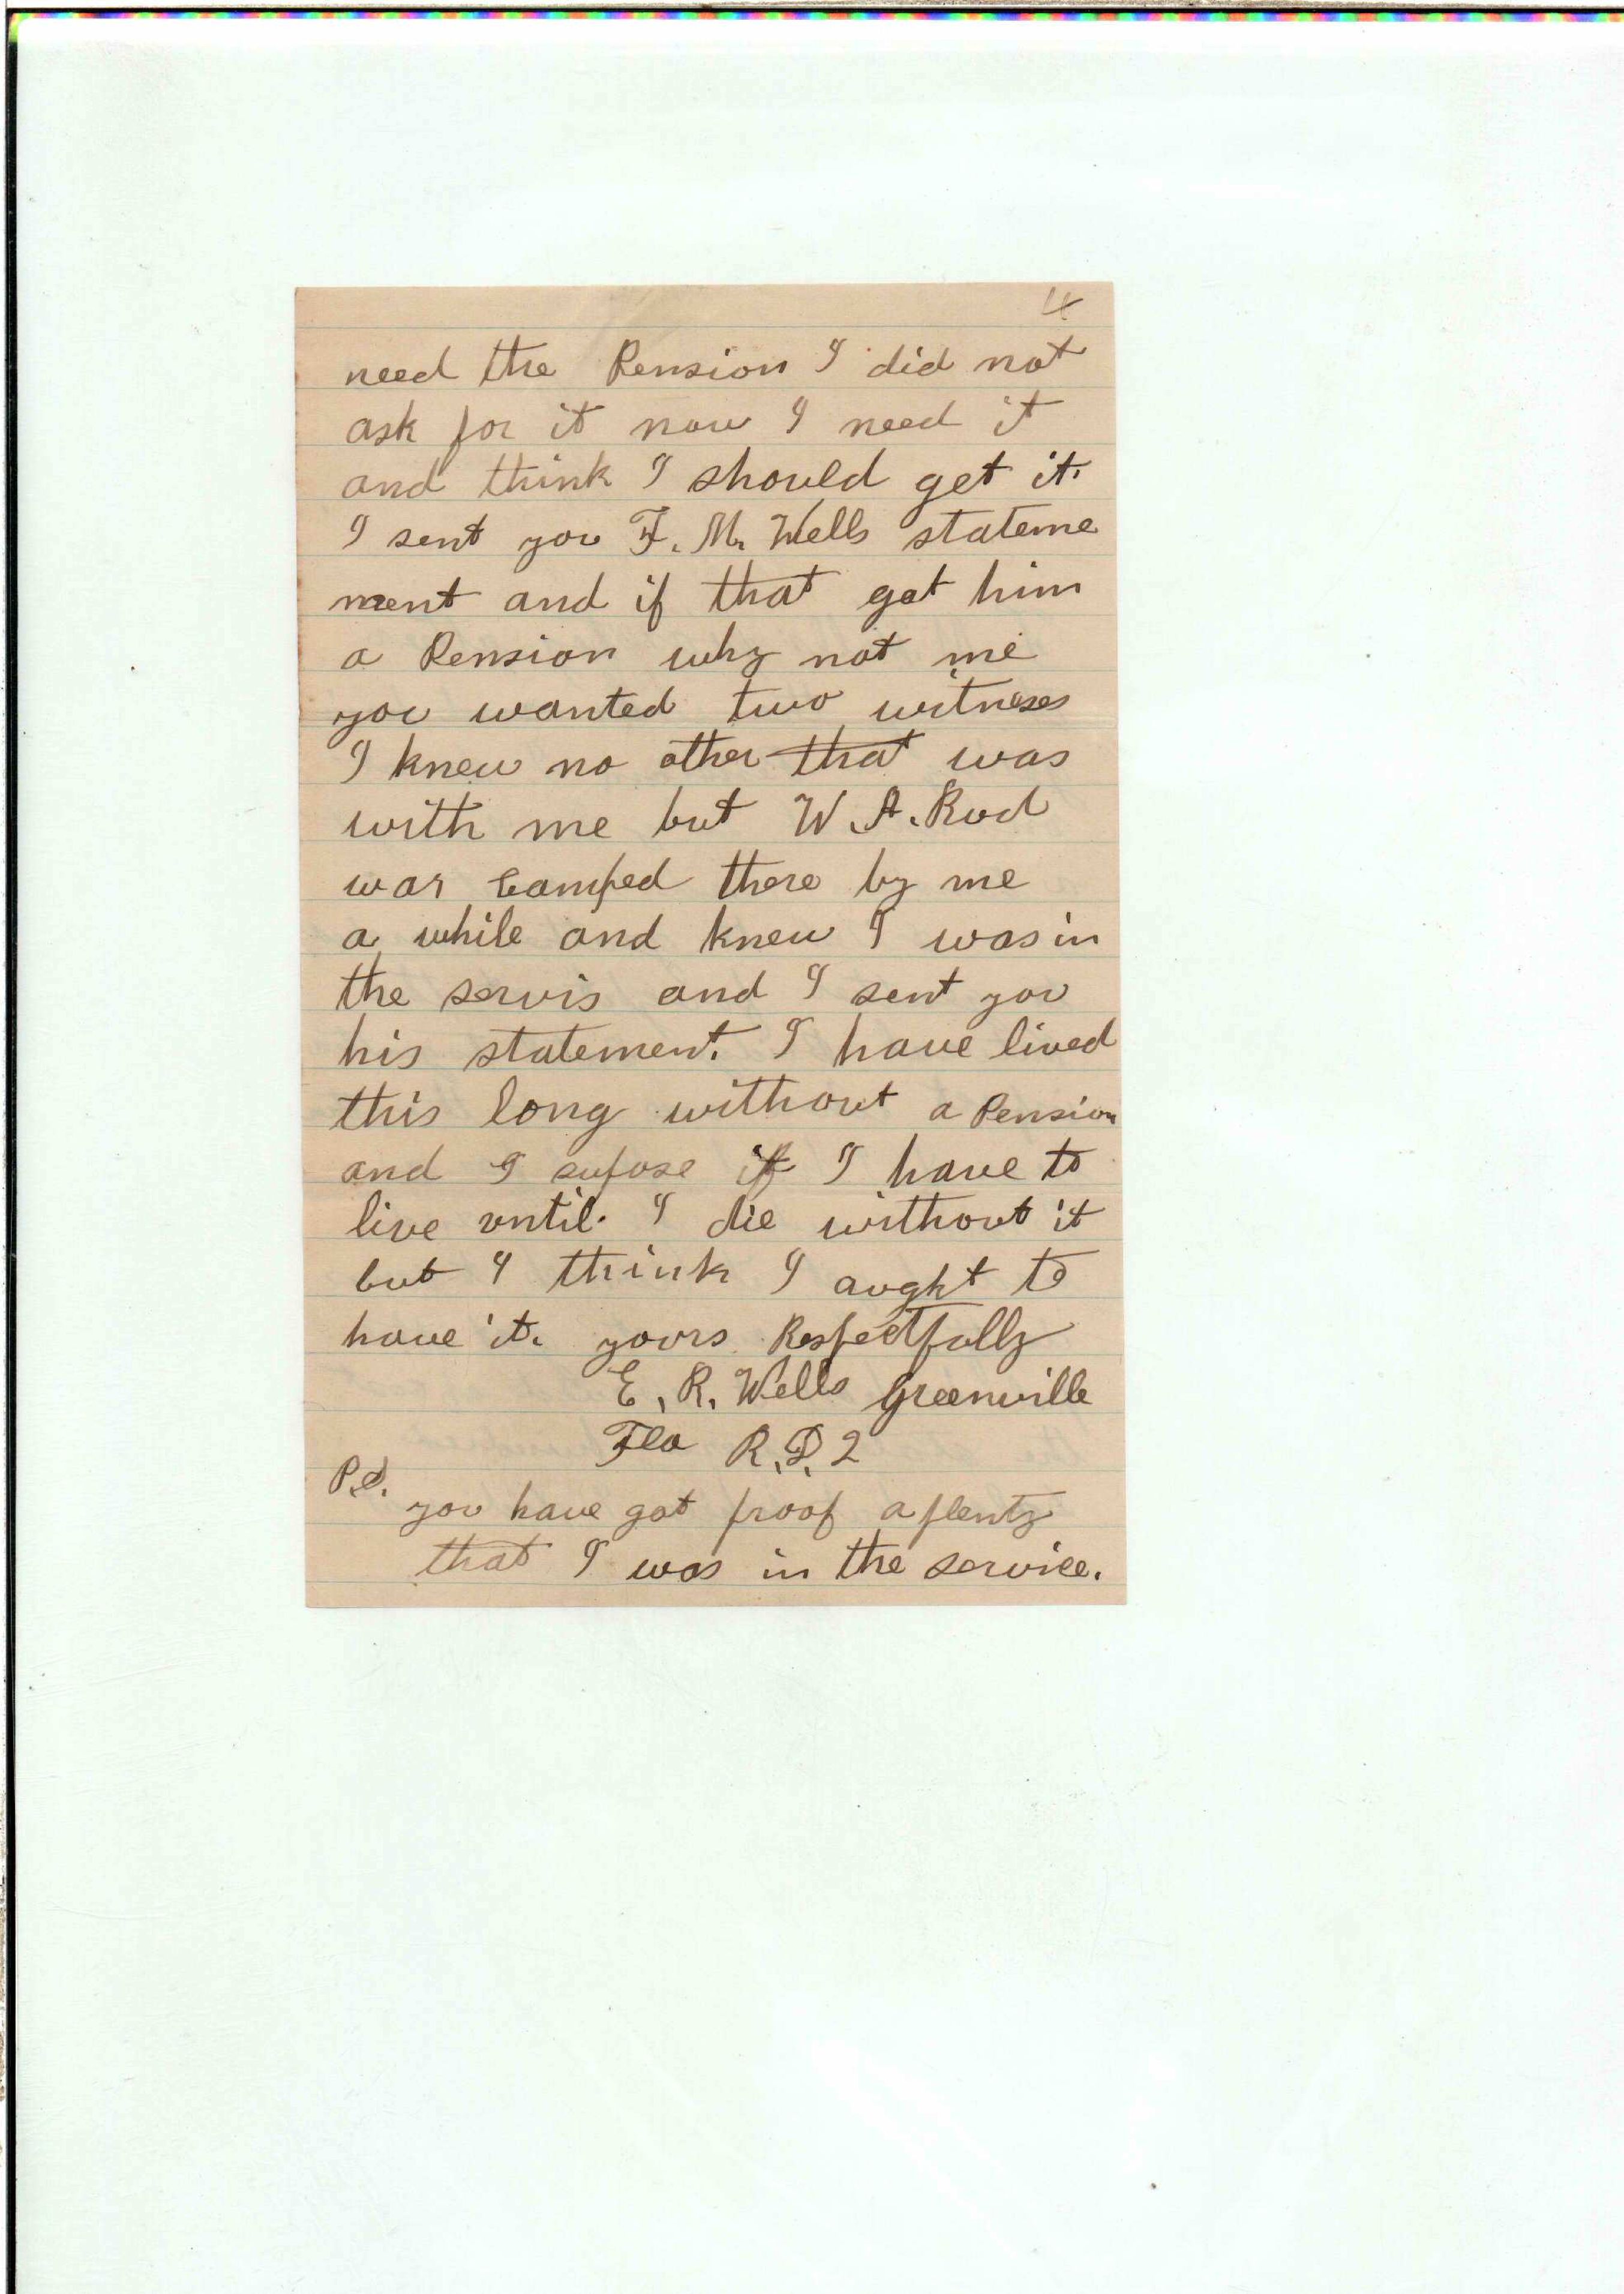 4
need the Pension I did not
ask for it now I need it
and think I should get it.
I sent you F. M. Wells stateme
ment and if that got him
a Pension why not me
you wanted two witneses
I knew no other that was
with me but W. A. Rud
was camped there by me
a while and knew I was in
the servis and I sent you
his statement. I have lived
this long without a Pension
and I supose if I have to
live until I die without it
but I think I aught to
have it. yours Respectfully
E. R. Wells Greenville
Fla R.D. 2
P.S.
you have got proof a plenty
that I was in the service.